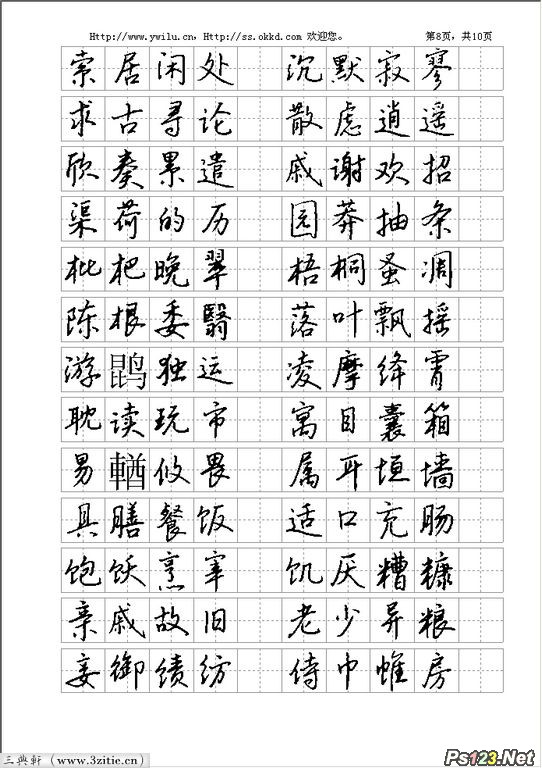 Http://www.ywilu.cn, Http://ss.okkd.com 欢迎您。 第8页，共10页
索居闲处 沉默寂寥
求古寻论 散虑逍遥
欣奏累遣 戚谢欢招
渠荷的历 园莽抽条
枇杷晚翠 梧桐蚤凋
陈根委翳 落叶飘摇
游鹍独运 凌摩绛霄
耽读玩市 寓目囊箱
易輶攸畏 属耳垣墙
具膳餐饭 适口充肠
饱饫烹宰 饥厌糟糠
亲戚故旧 老少异粮
妾御绩纺 侍巾帷房
三典轩（www.3zitie.cn）
Ps123.Net